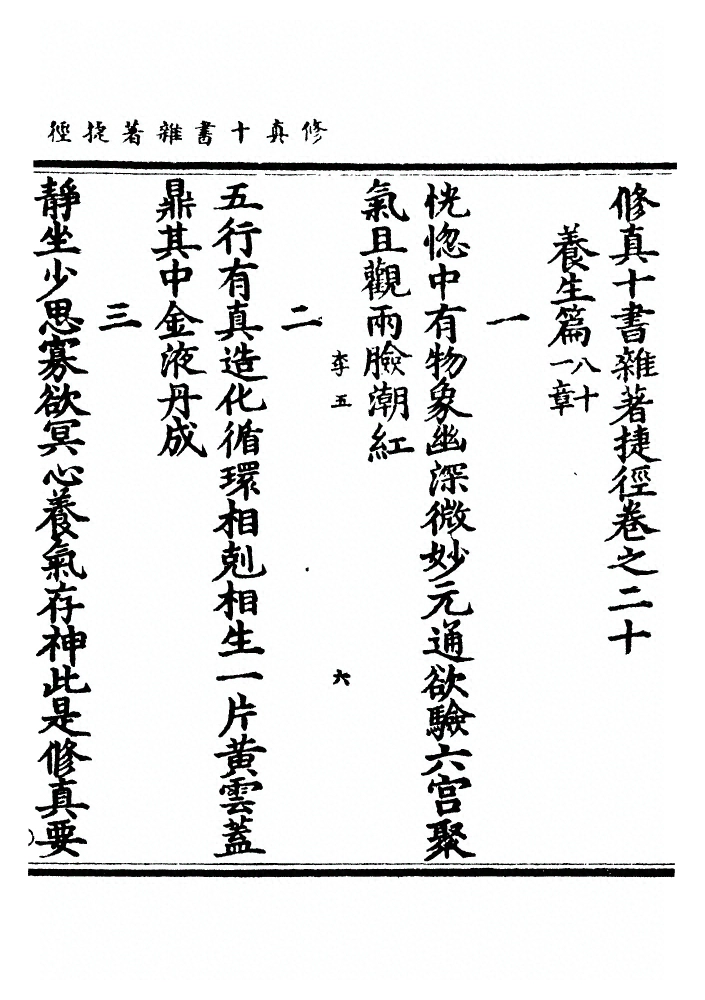 修真十書雜著捷徑
修真十書雜著捷徑卷之二十
養生篇八十一章
一
恍惚中有物象幽深微妙元通欲驗六宮聚
氣且觀兩臉潮紅
李五 六
二
五行有真造化循環相剋相生一片黃雲蓋
鼎其中金液丹成
三
靜坐少思寡欲冥心養氣存神此是修真要